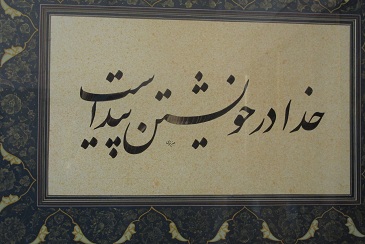 خدا در خویشتن پیداست